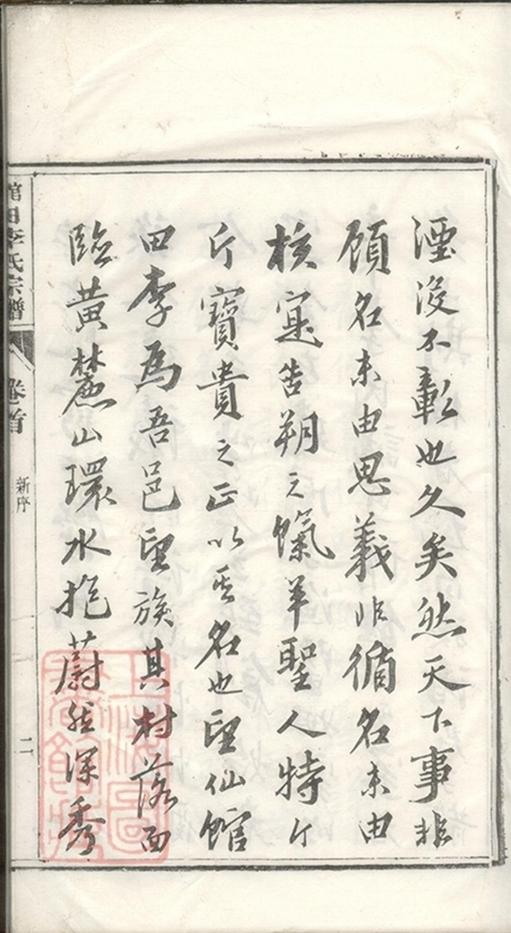 湮沒不彰也久矣然天下事非
顧名末由思義非循名末由
核寔告朔之餼羊聖人特斤
斤寶貴之正以其名也望仙館
田李為吾邑望族其村落面
臨黃麓山環水抱蔚然深秀
館田李氏宗譜
卷首
新序
二